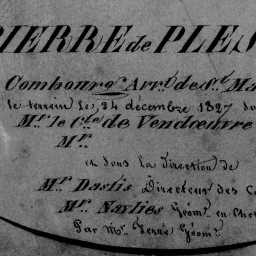 PIERRE de PLE
Combourg Arr.t de S.t Ma
le terrein le, 24 décembre 1827
M.r le C.te de Vendœuvre
M.r
et sous la Direction de
M.r Daslis Directeur des Co
M.r Naylies Géom.e en Chef
Par M.r Géom.e